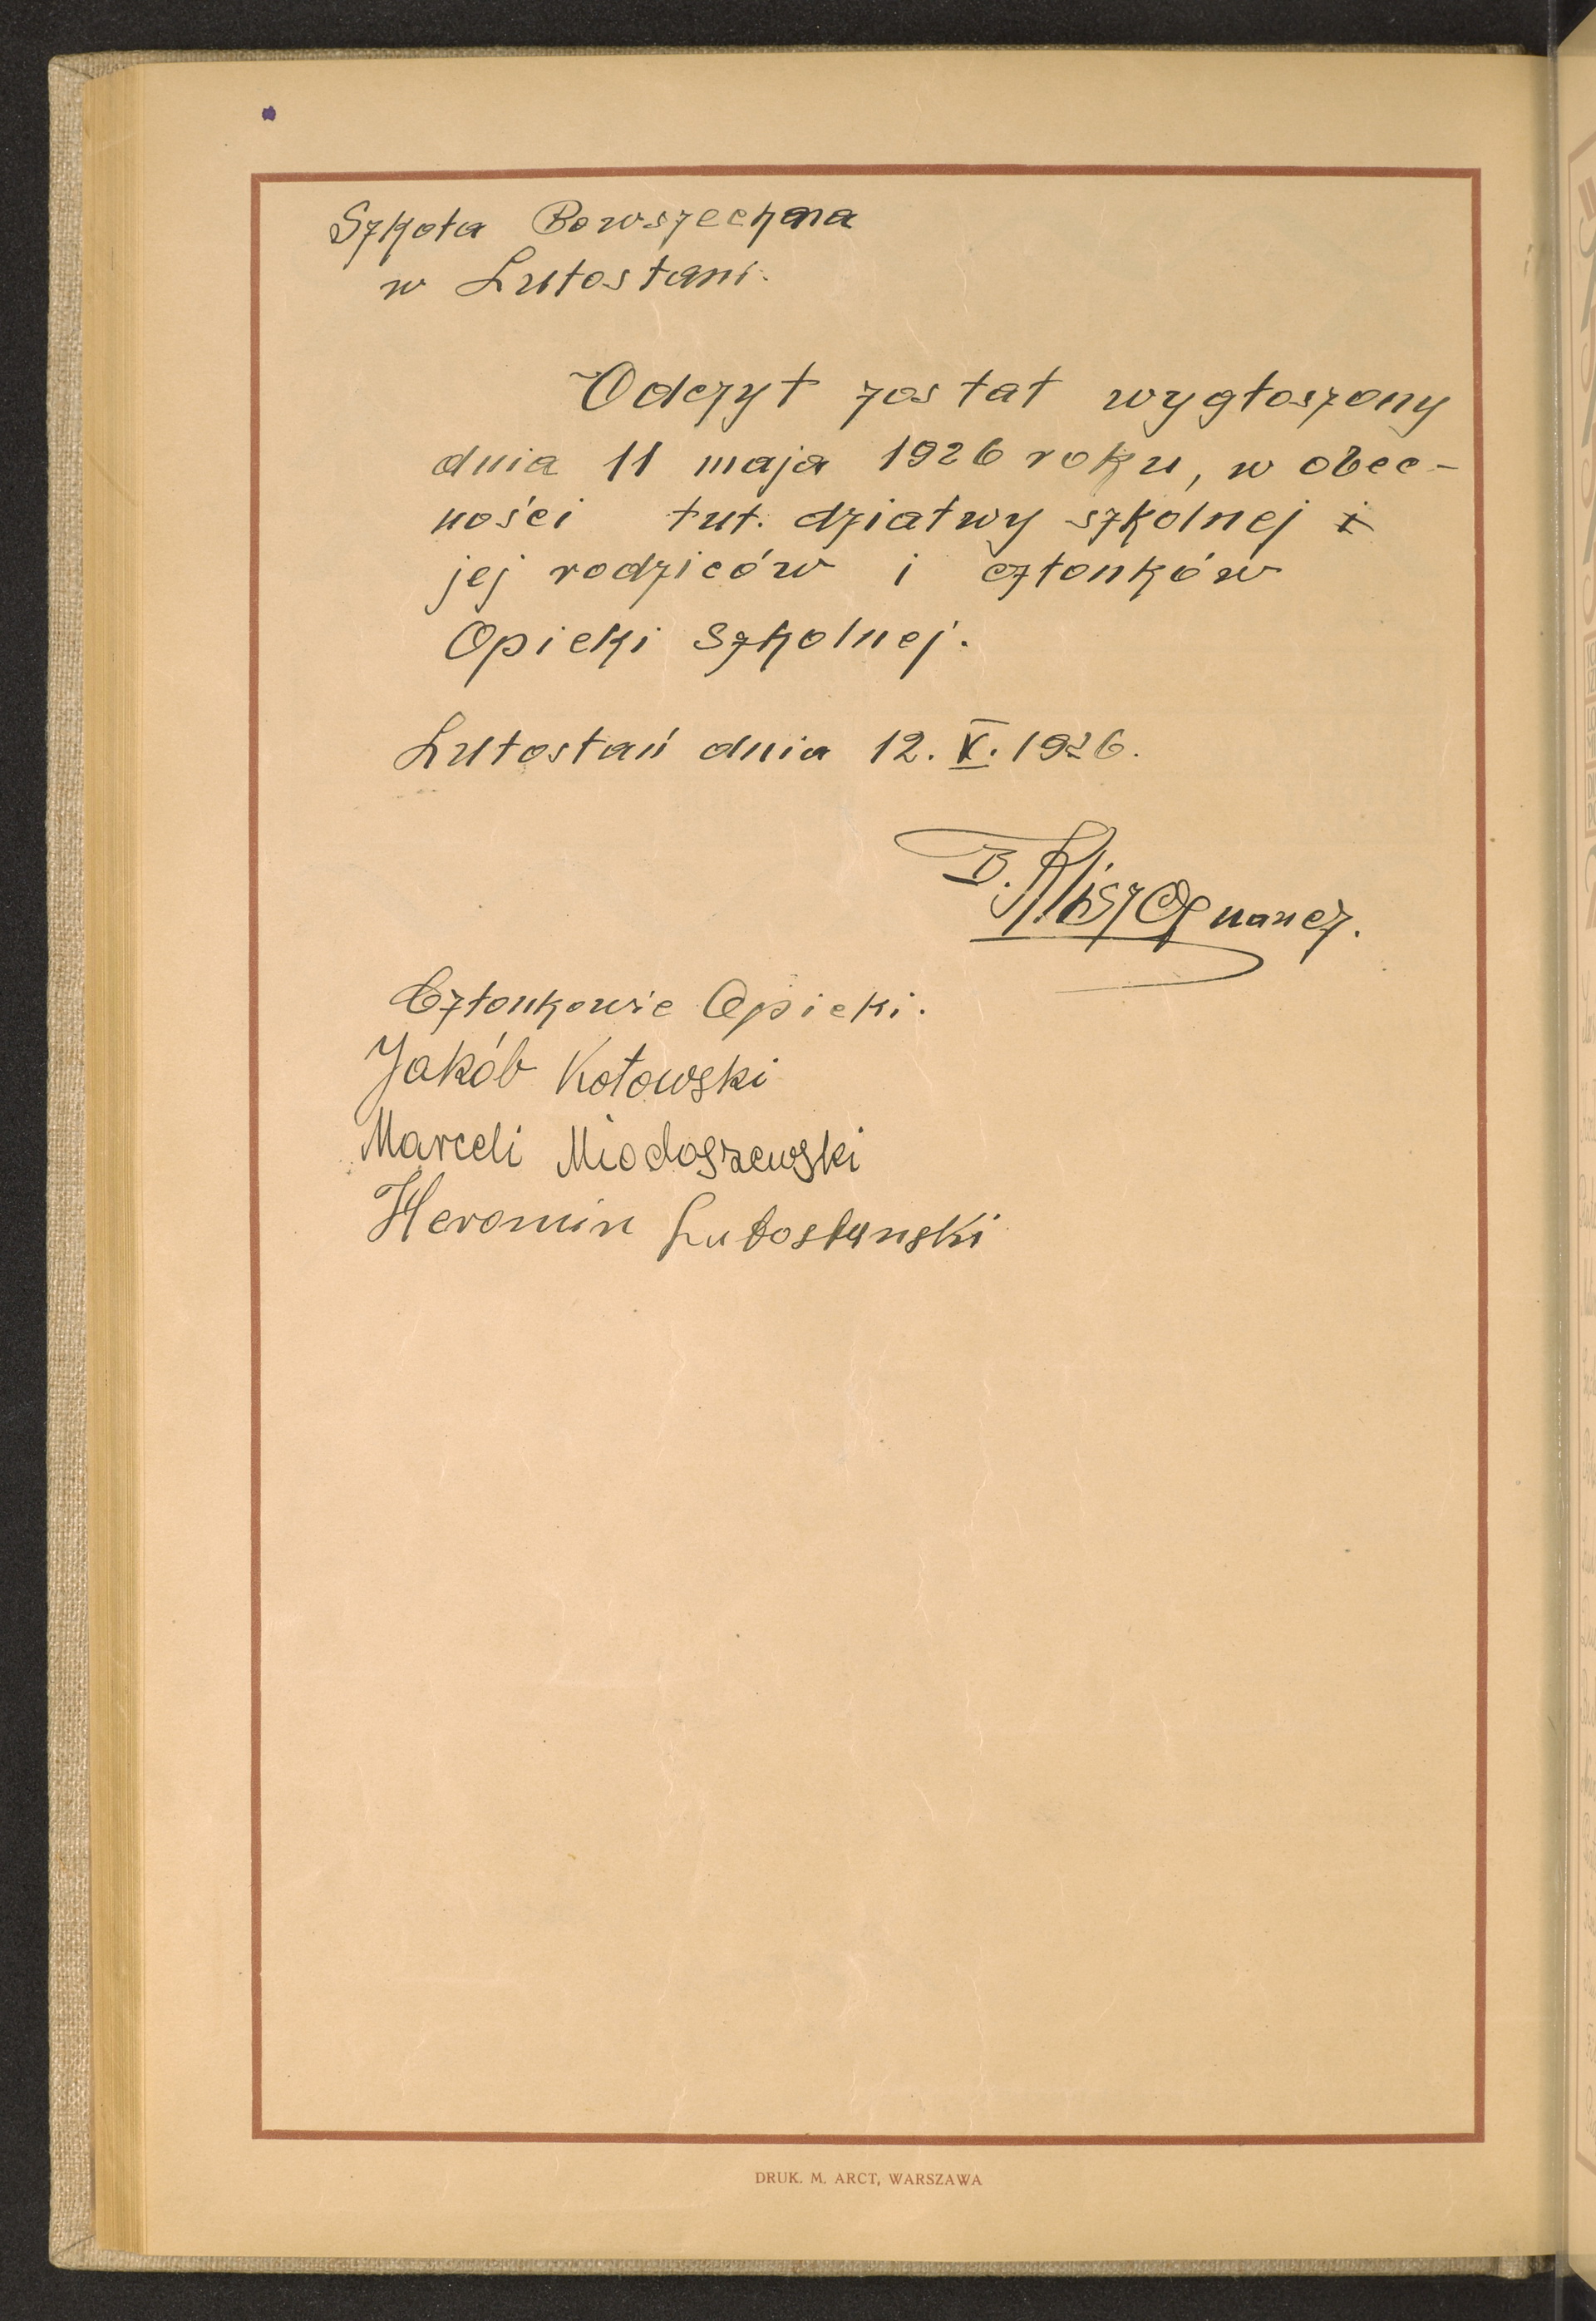 Szkoła Powszechna
w Lutostani.
Odczyt został wygłoszony
dnia 11 maja 1926 roku, w obec-
ności tut. dziatwy szkolnej i
jej rodziców i członków
Opieki Szkolnej.
Lutostań dnia 12. V. 1926.
B.
Członkowie Opieki.
Jakób Kotowski
Marceli Miodoszewski
Heromin Lutostanski
DRUK. M. ARCT, WARSZAWA